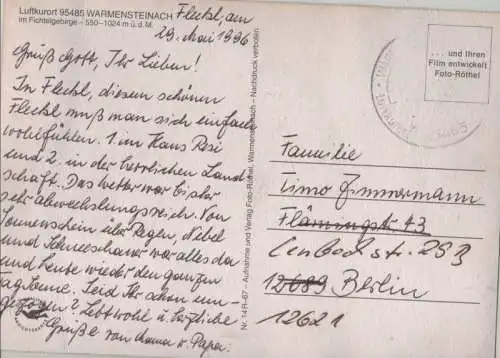 Luftkurort 95485 WARMENSTEINACH
im Fichtelgebirge – 550–1024 m ü. d. M.
Fleckl, am
29. Mai 1996
Grüß Gott, Ihr Lieben!
In Fleckl, diesem schönen
Fleckl muß man sich einfach
wohlfühlen. 1. im Haus Resi
und 2. in der herrlichen Land-
schaft. Das Wetter war bisher
sehr abwechslungsreich. Von
Sonnenschein über Regen, Nebel
und Schneeschauer war alles da
und heute wieder den ganzen
Tag Sonne. Seid Ihr schon um-
gezogen? Lebt wohl u. herzliche
Grüße von Mama u. Papa.
Nr. 14 R-67 – Aufnahme und Verlag Foto-Röthel, Warmensteinach – Nachdruck verboten
... und Ihren
Film entwickelt
Foto-Röthel
Familie
Timo Zimmermann
Flämingstr. 43
253
12689 Berlin
12621